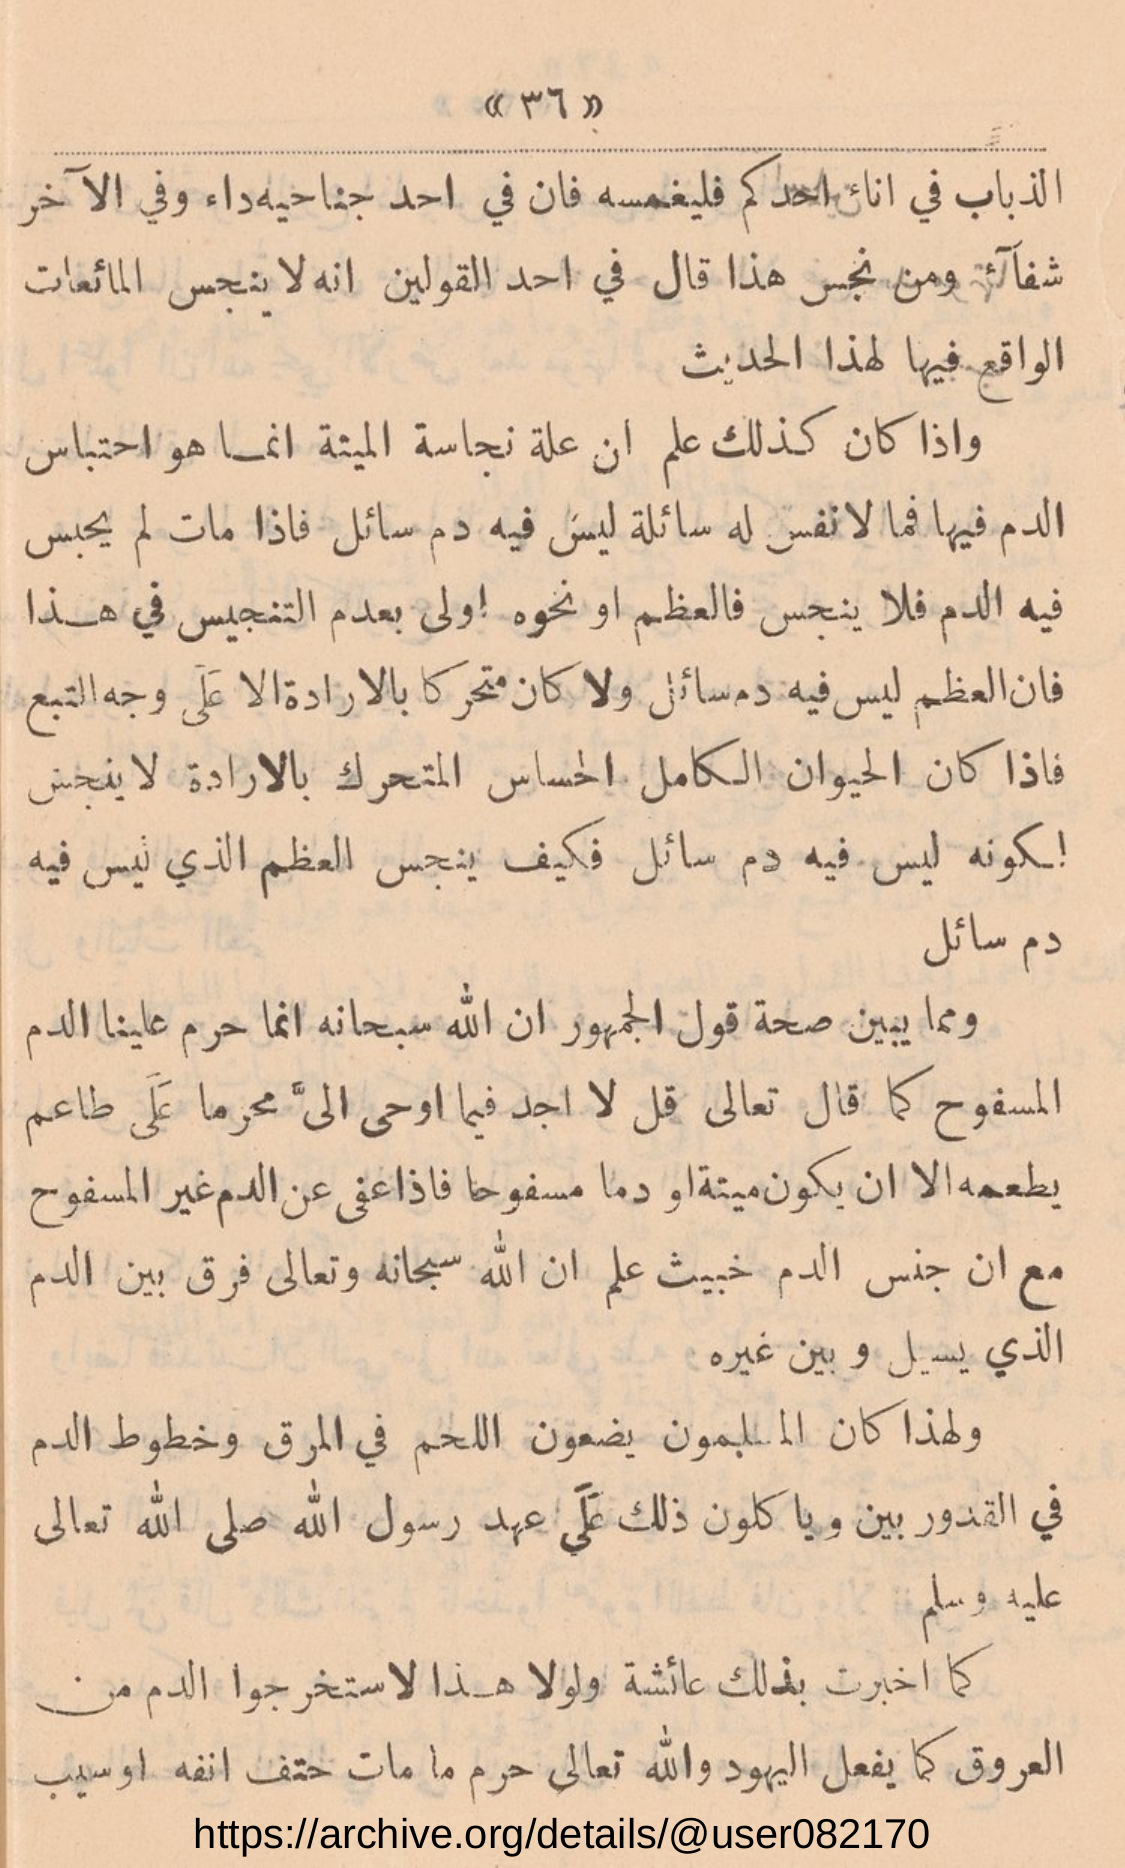 « ٣٦ »
الذباب في انائ احدكم فليغمسه فان في احد جناحيه داء وفي الآخر
شفآئ ومن نجس هذا قال في احد القولين انه لا ينجس المائعات
الواقع فيها لهذا الحديث
واذا كان كذلك علم ان علة نجاسة الميتة انما هو احتباس
الدم فيها فما لا نفس له سائلة ليس فيه دم سائل فاذا مات لم يحبس
فيه الدم فلا ينجس فالعظم او نحوه اولى بعدم التنجيس في هذا
فان العظم ليس فيه دم سائل ولا كان متحركا بالارادة الا عَلَى وجه التبع
فاذا كان الحيوان الكامل الحساس المتحرك بالارادة لا ينجس
لكونه ليس فيه دم سائل فكيف ينجس العظم الذي ليس فيه
دم سائل
ومما يبين صحة قول الجمهور ان الله سبحانه انما حرم علينا الدم
المسفوح كما قال تعالى قل لا اجد فيما اوحى الىَّ محرما عَلَى طاعم
يطعمه الا ان يكون ميتة او دما مسفوحا فاذا عفى عن الدم غير المسفوح
مع ان جنس الدم خبيث علم ان الله سبحانه وتعالى فرق بين الدم
الذي يسيل و بين غيره
ولهذا كان المسلمون يضعون اللحم في المرق وخطوط الدم
في القدور بين و ياكلون ذلك عَلَى عهد رسول الله صلى الله تعالى
عليه وسلم
كما اخبرت بذلك عائشة ولولا هذا لاستخرجوا الدم من
العروق كما يفعل اليهود والله تعالى حرم ما مات حتف انفه او سبب
https://archive.org/details/@user082170